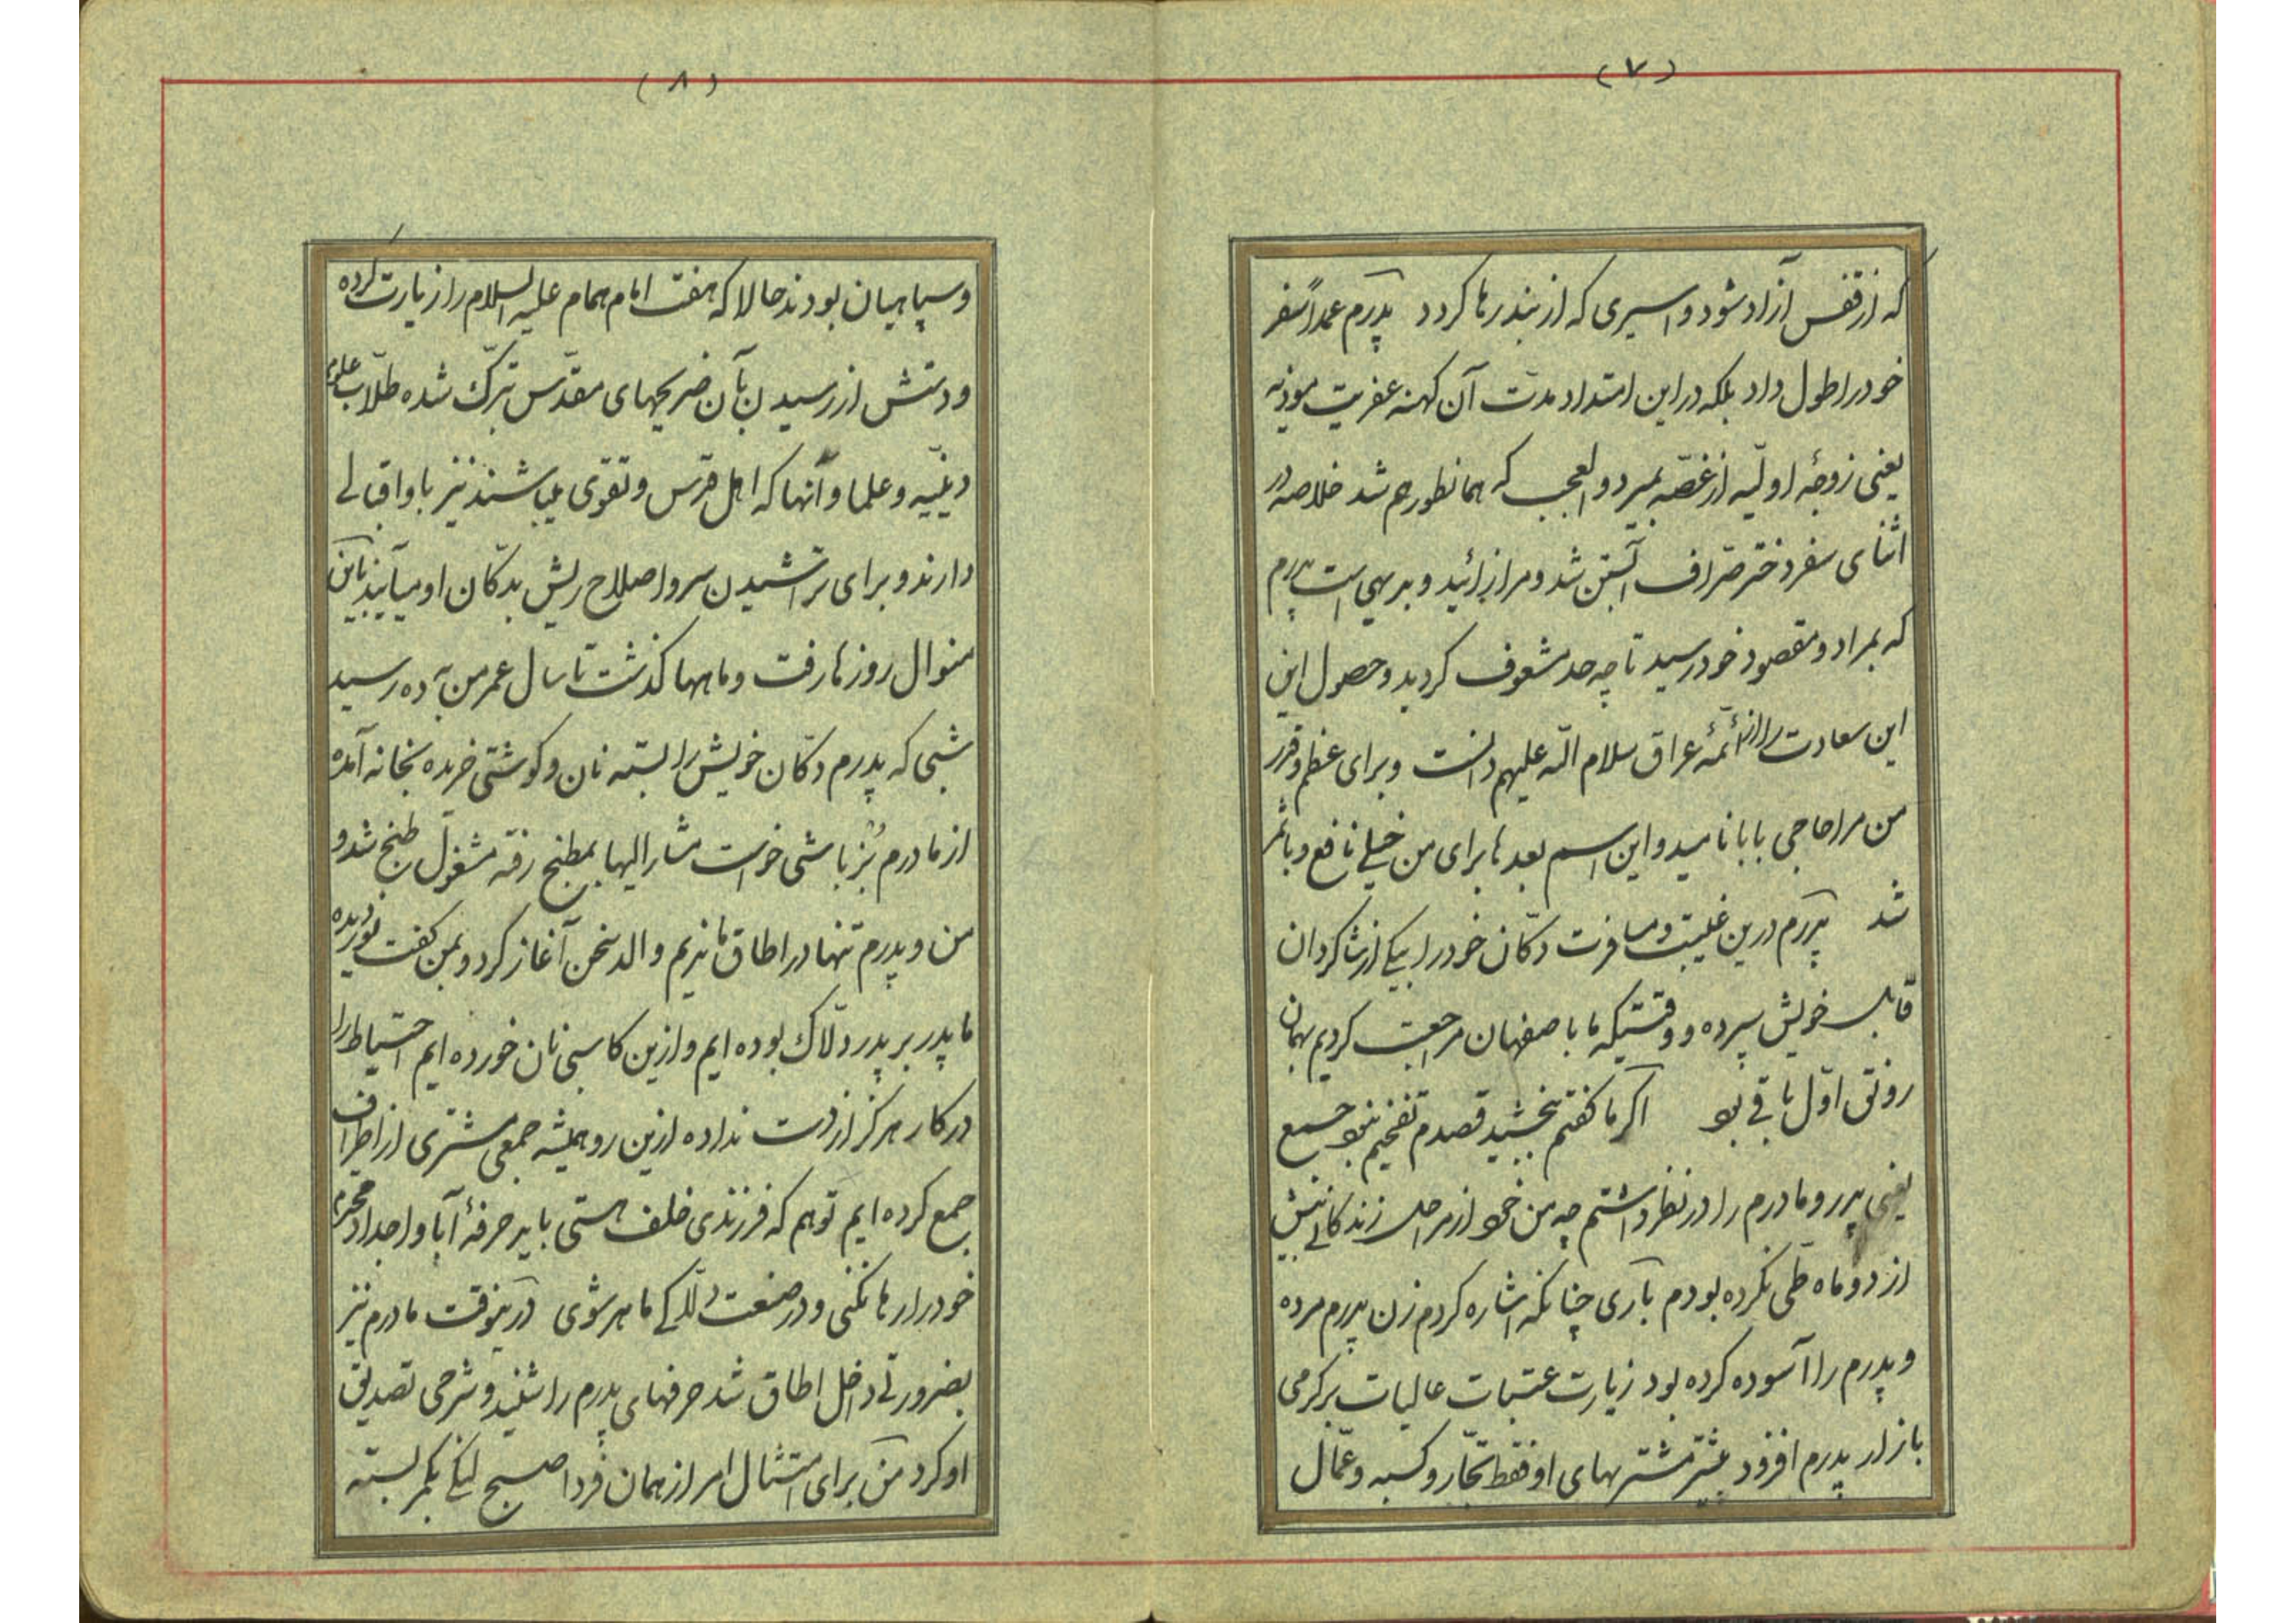 (۷)
که از قفس آزاد شود و اسیری که از بند رها کردد پدرم عمداً سفر
خود را طول داد بلکه در این امتداد مدت آن کهنه عفریت موذیه
یعنی زوجهٔ اولیه از غصّه بمیرد و العجب که همانطور هم شد خلاصه در
اثنای سفر دختر صرّاف آبستن شد و مرا زائید و بدیهی است پدرم
که بمراد و مقصود خود رسید تا چه حد مشعوف کردید و حصول این
این سعادت را از ائمهٔ عراق سلام اللّه علیهم دانست و برای عظم و قدر
من مرا حاجی بابا نامید و این اسم بعدها برای من خیلی نافع و با ثمر
شد پدرم درین غیبت و مسافرت دکّان خود را بیکی از شاکردان
قابل خویش سپرده و وقتیکه ما باصفهان مراجعت کردیم بهمان
رونق اوّل باقی بود اکر ما کفتم ببخشید قصدم تفخیم نبود جمیع
یعنی پدر و مادرم را در نظر داشتم چه من خود از مراحل زندکانی بیش
از دو ماه طی نکرده بودم باری چنانکه اشاره کردم زن پدرم مرده
و پدرم را آسوده کرده بود زیارت عتبات عالیات بر کرمی
بازار پدرم افزود بیشتر مشتریهای او فقط تجّار و کسبه و عمّال
(۸)
و سپاهیان بودند حالا که هفت امام همام علیه السلام را زیارت کرده
و دستش از رسیدن بآن ضریحهای مقدّس تبرّک شده طلّاب علوم
دینیّه و علما و آنها که اهل قدس و تقوی میباشند نیز باو اقبالی
دارند و برای تراشیدن سر و اصلاح ریش بدکّان او میآیند باین
منوال روزها رفت و ماهها کذشت تا سال عمر من به ده رسید
شبی که پدرم دکّان خویش را بسته نان و کوشتی خریده بخانه آمده
از مادرم بُزباشی خواست مشار الیها بمطبخ رفته مشغول طبخ شد و
من و پدرم تنها در اطاق ماندیم والد سخن آغاز کرد و بمن کفت نور دیده
ما پدر بر پدر دلّاک بوده ایم و ازین کاسبی نان خورده ایم احتیاط را
در کار هرکز از دست نداده ازین رو همیشه جمعی مشتری از اطراف
جمع کرده ایم تو هم که فرزندی خلف هستی باید حرفهٔ آبا و اجداد محترم
خود را رها نکنی و در صنعت دلّاکی ماهر شوی درینوقت مادرم نیز
بضرورتی داخل اطاق شد حرفهای پدرم را شنید و شرحی تصدیق
او کرد من برای امتثال امر از همان فردا صبح لنکی بکمر بسته